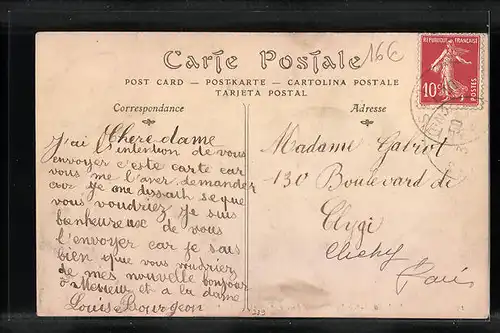 16€
Carte Postale
POST CARD — POSTKARTE — CARTOLINA POSTALE
TARJETA POSTAL
REPUBLIQUE FRANÇAISE
10c
POSTES
Correspondance
Chere dame
j'ai l'intention de vous
envoyer c'este carte car
vous me l'aver demander
car je me dissait se que
vous voudriez je suis
bienheureux de vous
l'envoyer car je sais
bien que vous voudriez
de mes nouvelle bonjour
a Mesieur et a la dame
Louis Bourgeon
Adresse
Madame Gabriot
130 Boulevard de
Clygi
Clichy
Paris